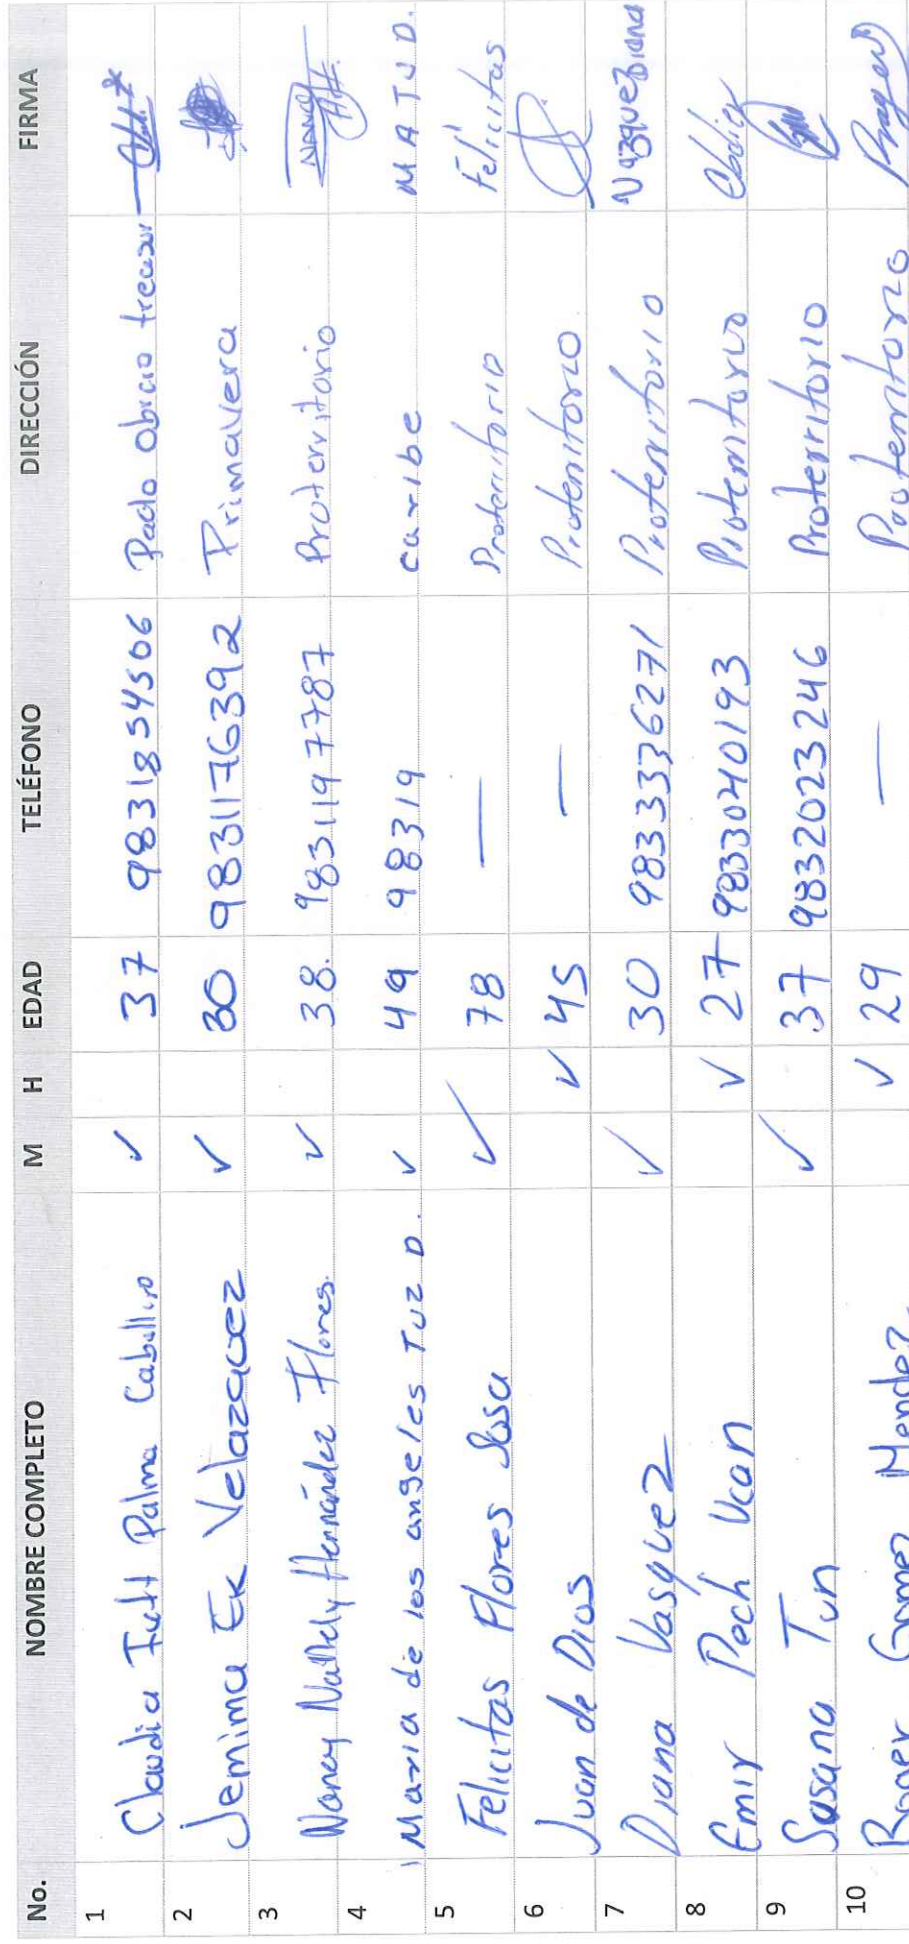 No. NOMBRE COMPLETO M H EDAD TELÉFONO DIRECCIÓN FIRMA
1 Claudia Ivett Palma Caballero ✓ 37 9831854506 Pacto Obrero
2 Jemima Ek Velazquez ✓ 30 9831176392 Primavera
3 Nancy Nallely Hernández Flores. ✓ 38. 9831197787 Proterritorio Nancy
4 Maria de los angeles Tuz D. ✓ 49 98319 caribe M A T U D.
5 Felicitas Flores Sosa ✓ 78 — Proterritorio Felicitas
6 Juan de Dios ✓ 45 — Proterritorio
7 Diana Vasquez ✓ 30 9833336271 Proterritorio Vazquez Diana
8 Emir Pech Ucan ✓ 27 9833040193 Proterritorio
9 Susana Tun ✓ 37 9832023246 Proterritorio
10 Roger Gomez Mendez. ✓ 29 — Proterritorio